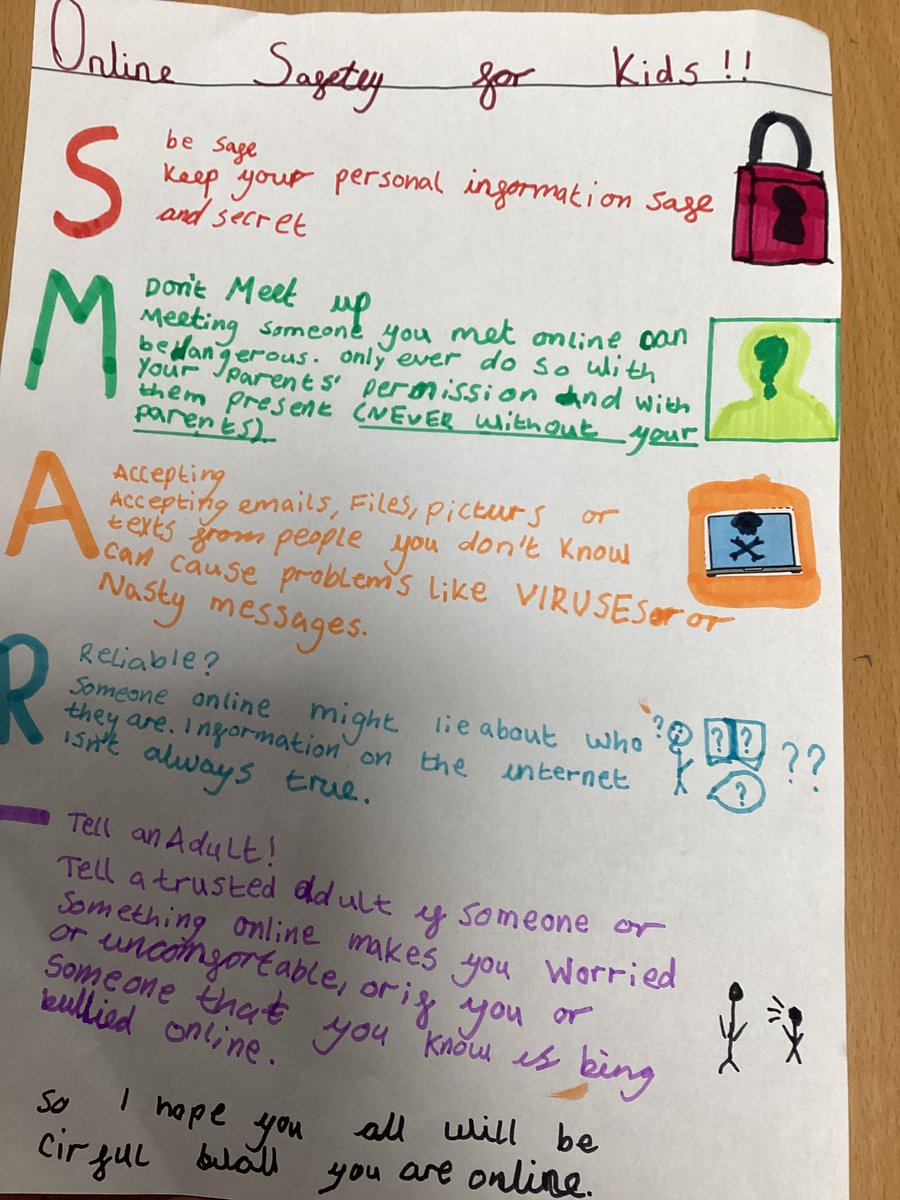 Online Safetey for Kids!!
S
be safe
Keep your personal information safe
and secret
M
Don't Meet up
Meeting someone you met online can
be dangerous. only ever do so with
your parents' permission and with
them present (NEVER without your
parents).
A
Accepting
Accepting emails, Files, picturs or
texts from people you don't know
can cause problems like VIRUSES or or
Nasty messages.
R
Reliable?
Someone online might lie about who
they are. Information on the internet
isn't always true.
? ? ? ? ? ??
Tell an Adult!
Tell a trusted adult if someone or
Something online makes you worried
or uncomfortable, or if you or
Someone that you know is being
bullied online.
So I hope you all will be
Cirful you are online.